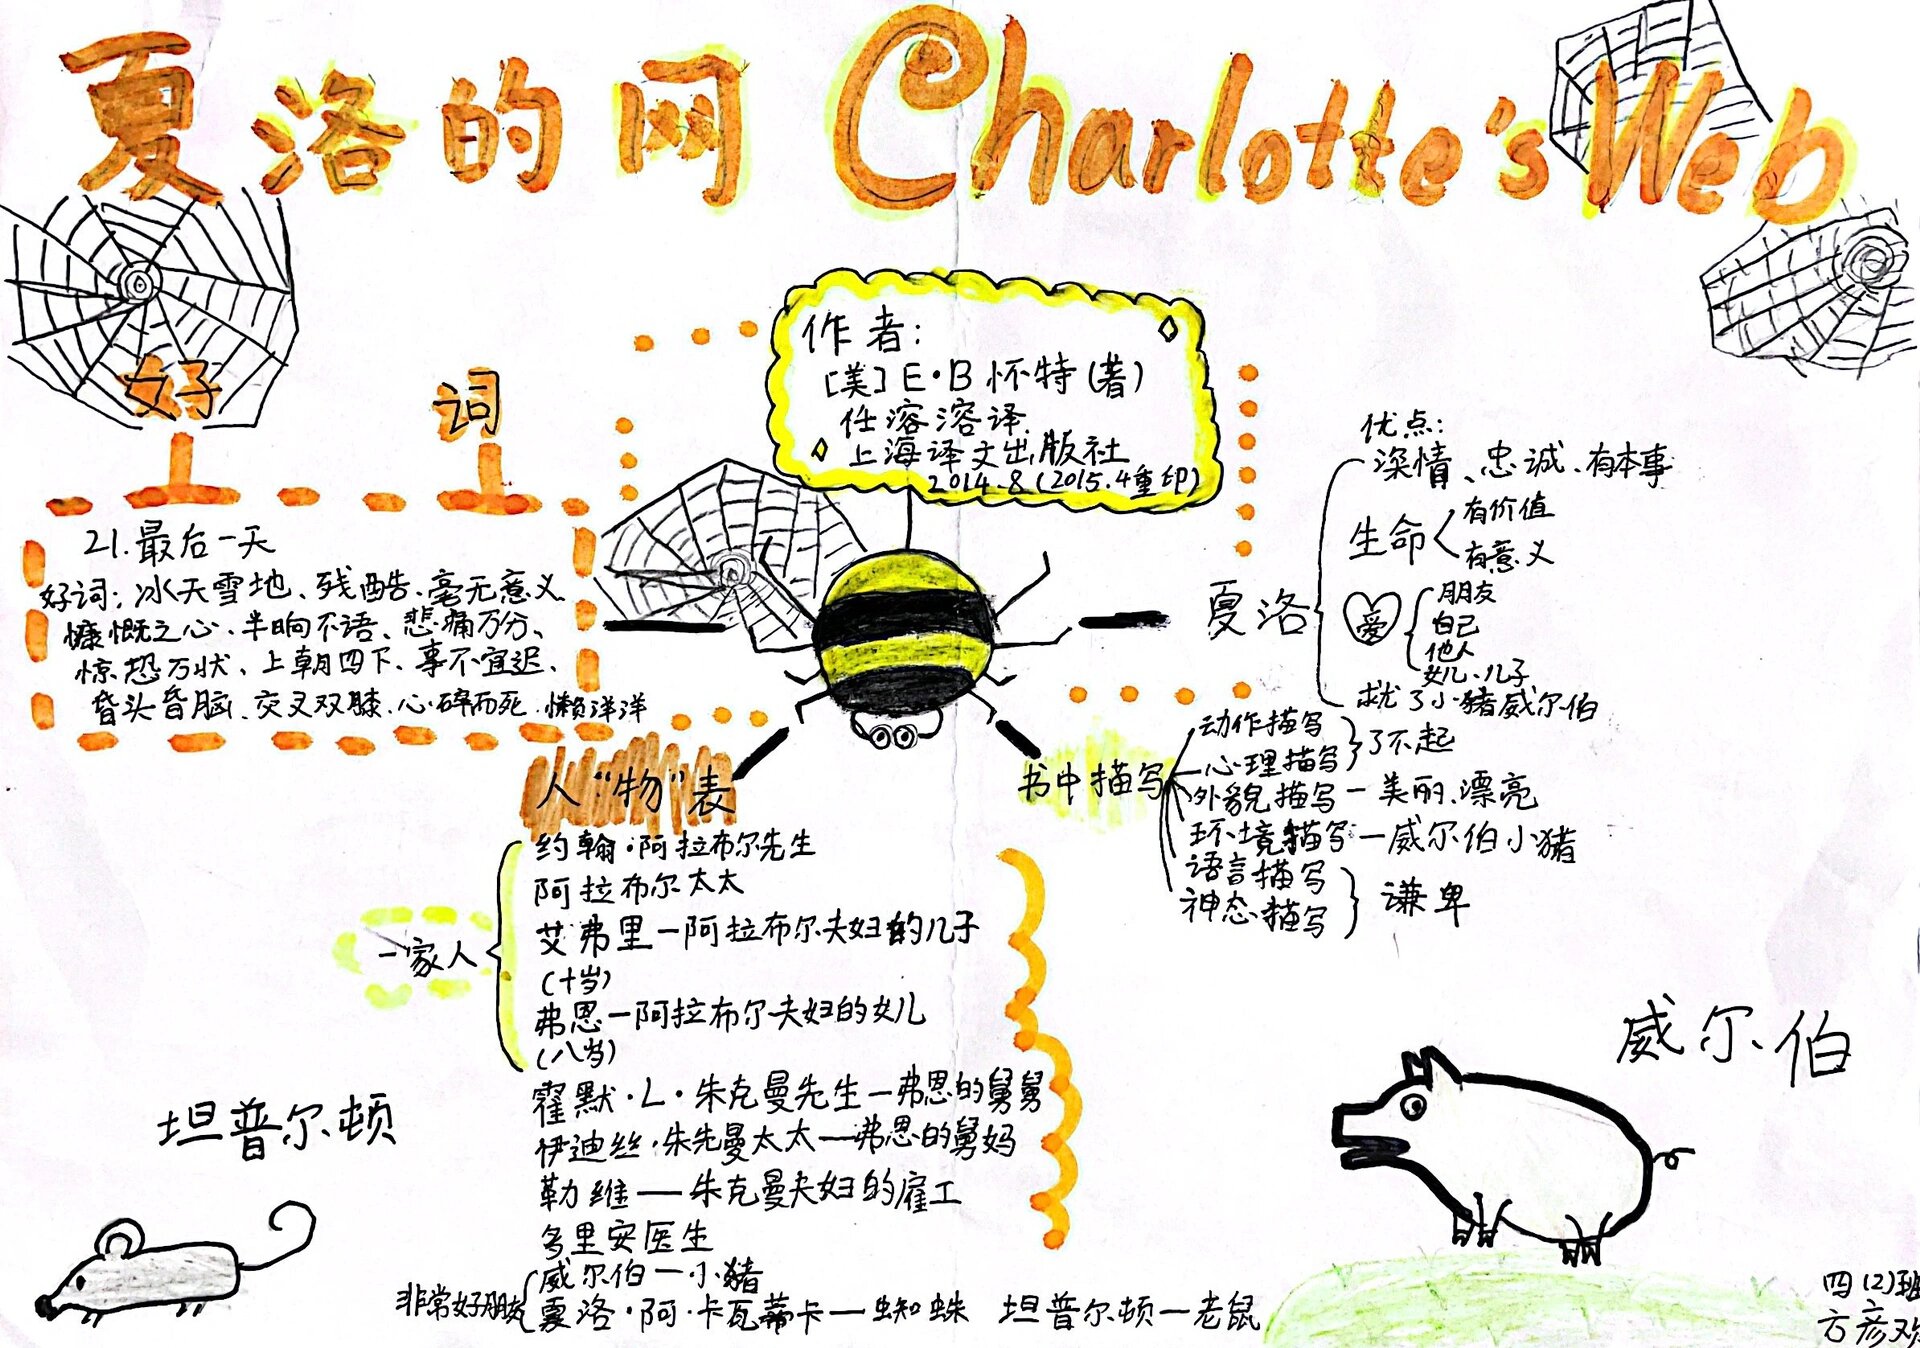 夏洛的网 Charlotte's Web
作者：
[美] E·B 怀特(著)
任溶溶译.
上海译文出版社
2014.8(2015.4重印)
好 词
21.最后一天
好词：冰天雪地、残酷、毫无意义
慷慨之心、半晌不语、悲痛万分、
惊恐万状、上朝四下、事不宜迟、
昏头昏脑、交叉双膝、心碎而死、懒洋洋
夏洛
优点：
深情、忠诚、有本事
生命
有价值
有意义
爱
朋友
自己
他人
女儿、儿子
救了小猪威尔伯
书中描写
动作描写
心理描写
了不起
外貌描写—美丽、漂亮
环境描写—威尔伯小猪
语言描写
神态描写
谦卑
人“物”表
一家人
约翰·阿拉布尔先生
阿拉布尔太太
艾弗里—阿拉布尔夫妇的儿子
(十岁)
弗恩—阿拉布尔夫妇的女儿
(八岁)
霍默·L·朱克曼先生—弗恩的舅舅
伊迪丝·朱先曼太太—弗恩的舅妈
勒维—朱克曼夫妇的雇工
多里安医生
非常好朋友
威尔伯—小猪
夏洛·阿·卡瓦蒂卡—蜘蛛 坦普尔顿—老鼠
坦普尔顿
威尔伯
四(2)班